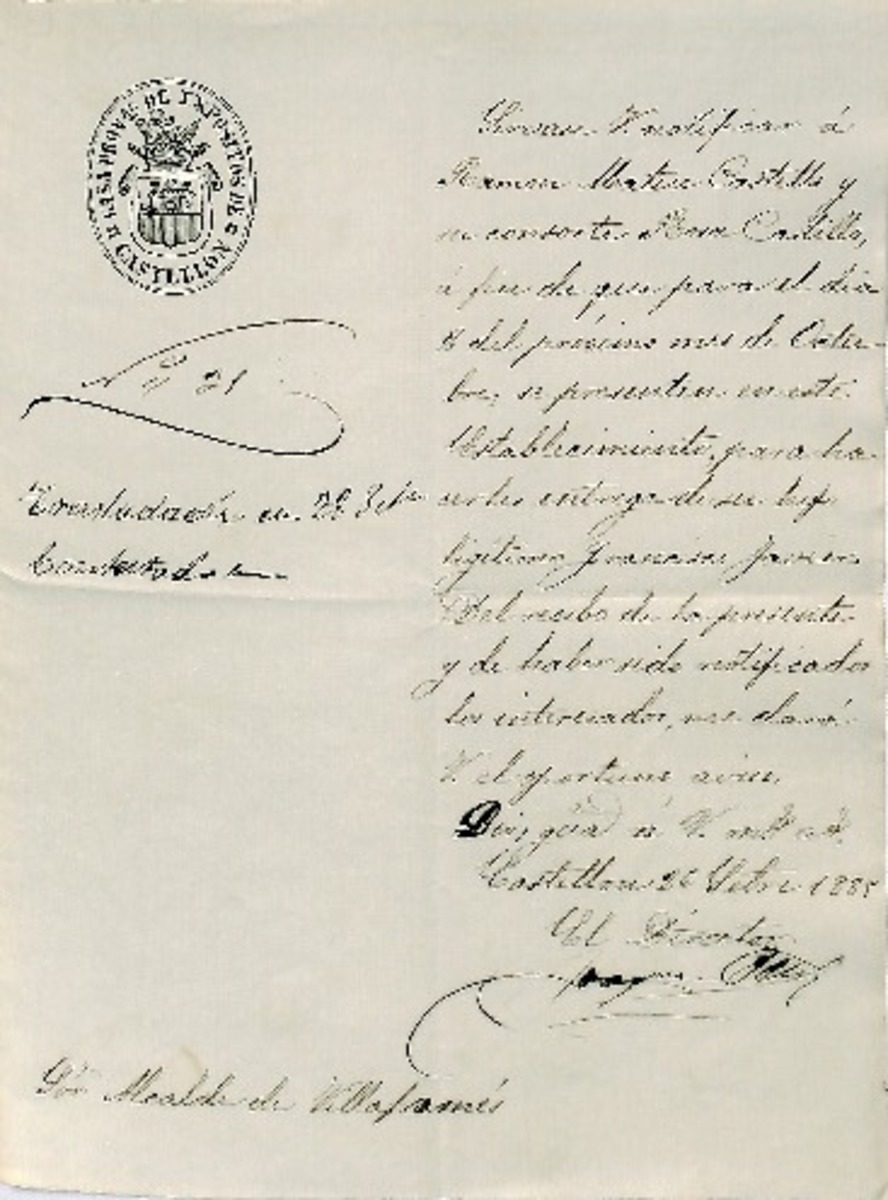 CASA PROVAL DE EXPOSITOS DE CASTELLON
Nº 21
Trasladada en 28 Setbre
Contestada
Sirvase V. notificar á
Ramon Mateu Castillo y
su consorte Rosa Castillo,
á fin de que para el dia
8 del próximo mes de Octu-
bre, se presenten en este
Establecimiento, para ha-
cerles entrega de su hijo
legítimo Francisco Javier.
Del recibo de la presente
y de haber sido notificados
los interesados, me dará
V. el oportuno aviso.
Dios gũe á V. m.s a.s
Castellon 26 Setbre 1885
El Director
Sôr Alcalde de Villafamés